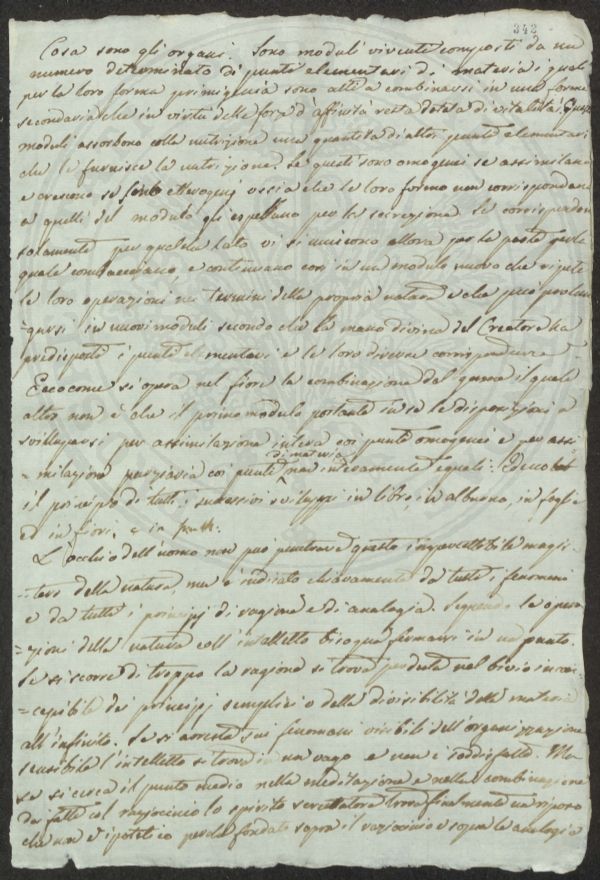 342
Cosa sono gli organi. Sono moduli viventi composti da un
numero determinato di punti elementari di materia i quali
per la loro forma primigenia sono atti a combinarsi in una forma
secondaria che in virtù delle forze d'affinità resta dotata di vitalità. Questi
moduli assorbono colla nutrizione una quantità di altri punti elementari
che le furnisce la nutrizione. Se questi sono omogenei se assimilano
e crescono se sono eterogenei ossia che le loro forme non corrispondano
a quelle del modulo gli espellano per la secrezione. Se corrispondono
solamente per qualche lato vi si uniscono allora per la parte per la
quale combacciano, e continuano così in un modulo nuovo che ripete
le loro operazioni nei termini della propria natura e che può prolun
=garsi in nuovi moduli secondo che la mano divina del Creatore ha
predisposte i punti elementari e le loro diverse corrispondenze.
Ecco come si opera nel fiore la combinazione dal gema il quale
altro non è che il primo modulo portante in se le disposizioni a
svilupparsi per assimilazione intera coi punti omogenei e per assi
di materia
=milazione parziaria coi punti non interamente eguali: Ed ecco
il principio di tutti i successivi sviluppi in libri, in alburno, in foglie
ed in fiori, e in frutti.
L'occhio dell'uomo non può penetrare questo impercettibile magis
tero della natura, ma è indicato chiaramente da tutti i fenomeni
e da tutti i principj di ragione e di analogia. Seguendo le opera
=zioni della natura coll'intelletto bisogna fermarsi in un punto.
Se si scorre di troppo la ragione si trova perduta nel bivio incon
=capibile dei principj semplici o della divisibilità della materia
all'infinito. Se si arresta sui fenomeni visibili dell'organizzazione
sensibile l'intelletto si trova in un vago e non è soddisfatto. Ma
se si cerca il punto medio nella meditazione e nella combinazione
dei fatti col raziocinio lo spirito scrutatore trova finalmente un riposo
che non è ipotetico perchè fondato sopra il raziocinio e sopra la analogia